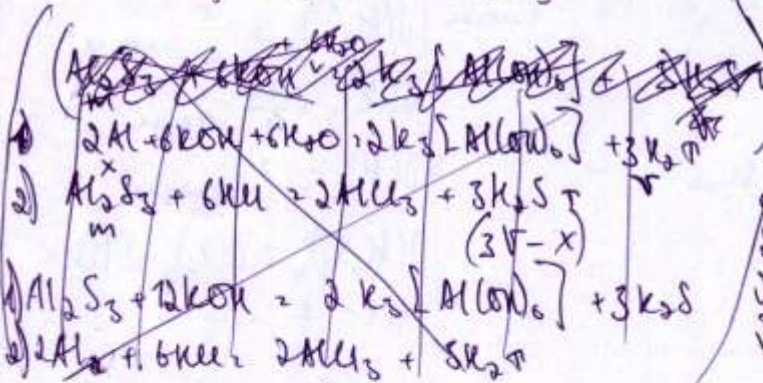 + 6H2O
Al2S3 + 6KOH = 2K3[Al(OH)6] + 3H2S
m
1) 2Al + 6KOH + 6H2O = 2K3[Al(OH)6] + 3H2↑
x V
2) Al2S3 + 6HCl = 2AlCl3 + 3H2S↑
m (3V - x)
1) Al2S3 + 12KOH = 2K3[Al(OH)6] + 3K2S
2) 2Al + 6HCl = 2AlCl3 + 3H2↑